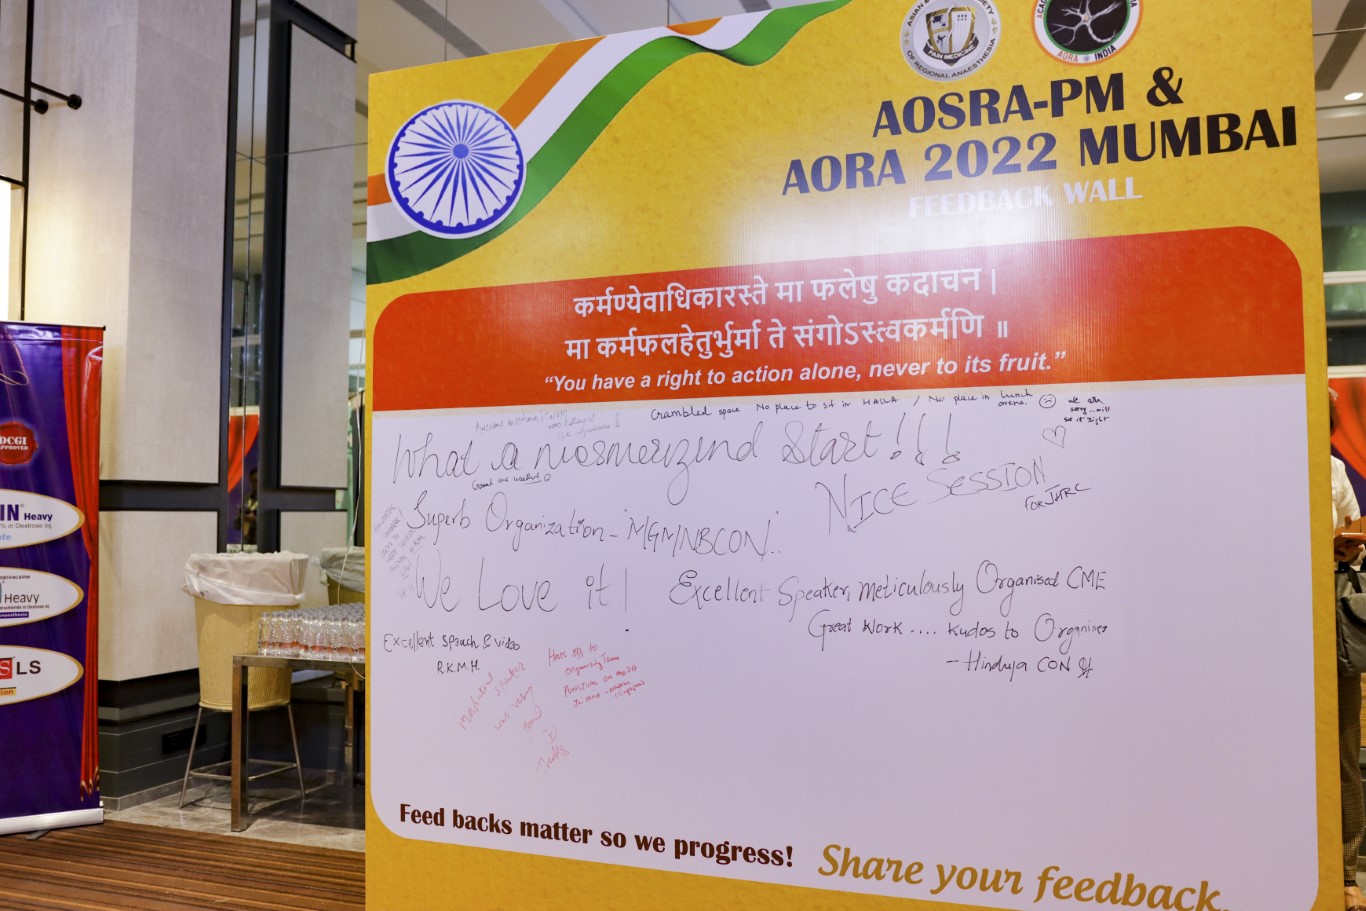 ASIAN &
OF REGIONAL ANAESTHESIA
PAIN MEDICINE
AORA INDIA
AOSRA-PM &
AORA 2022 MUMBAI
FEEDBACK WALL
कर्मण्येवाधिकारस्ते मा फलेषु कदाचन |
मा कर्मफलहेतुर्भुर्मा ते संगोऽस्त्वकर्मणि ॥
“You have a right to action alone, never to its fruit.”
Crambled space No place to sit in HALL / No place in Lunch
We are
sorry .. will
set it right
What a mesmerizind Start!!!
NICE SESSION
FOR JHRC
Superb Organization - MGM/NBCON!..
We Love it!
Excellent Speaker, Meticulously Organised CME
Great Work .... Kudos to Organises
- Hinduja CON
Excellent speach & video
R.K.M.H.
speaker
was very
good
Hats off to
Organising Team
Feed backs matter so we progress!
Share your feedback.
DCGI
APPROVED
IN® Heavy
% in Dextrose inj.
Heavy
LS